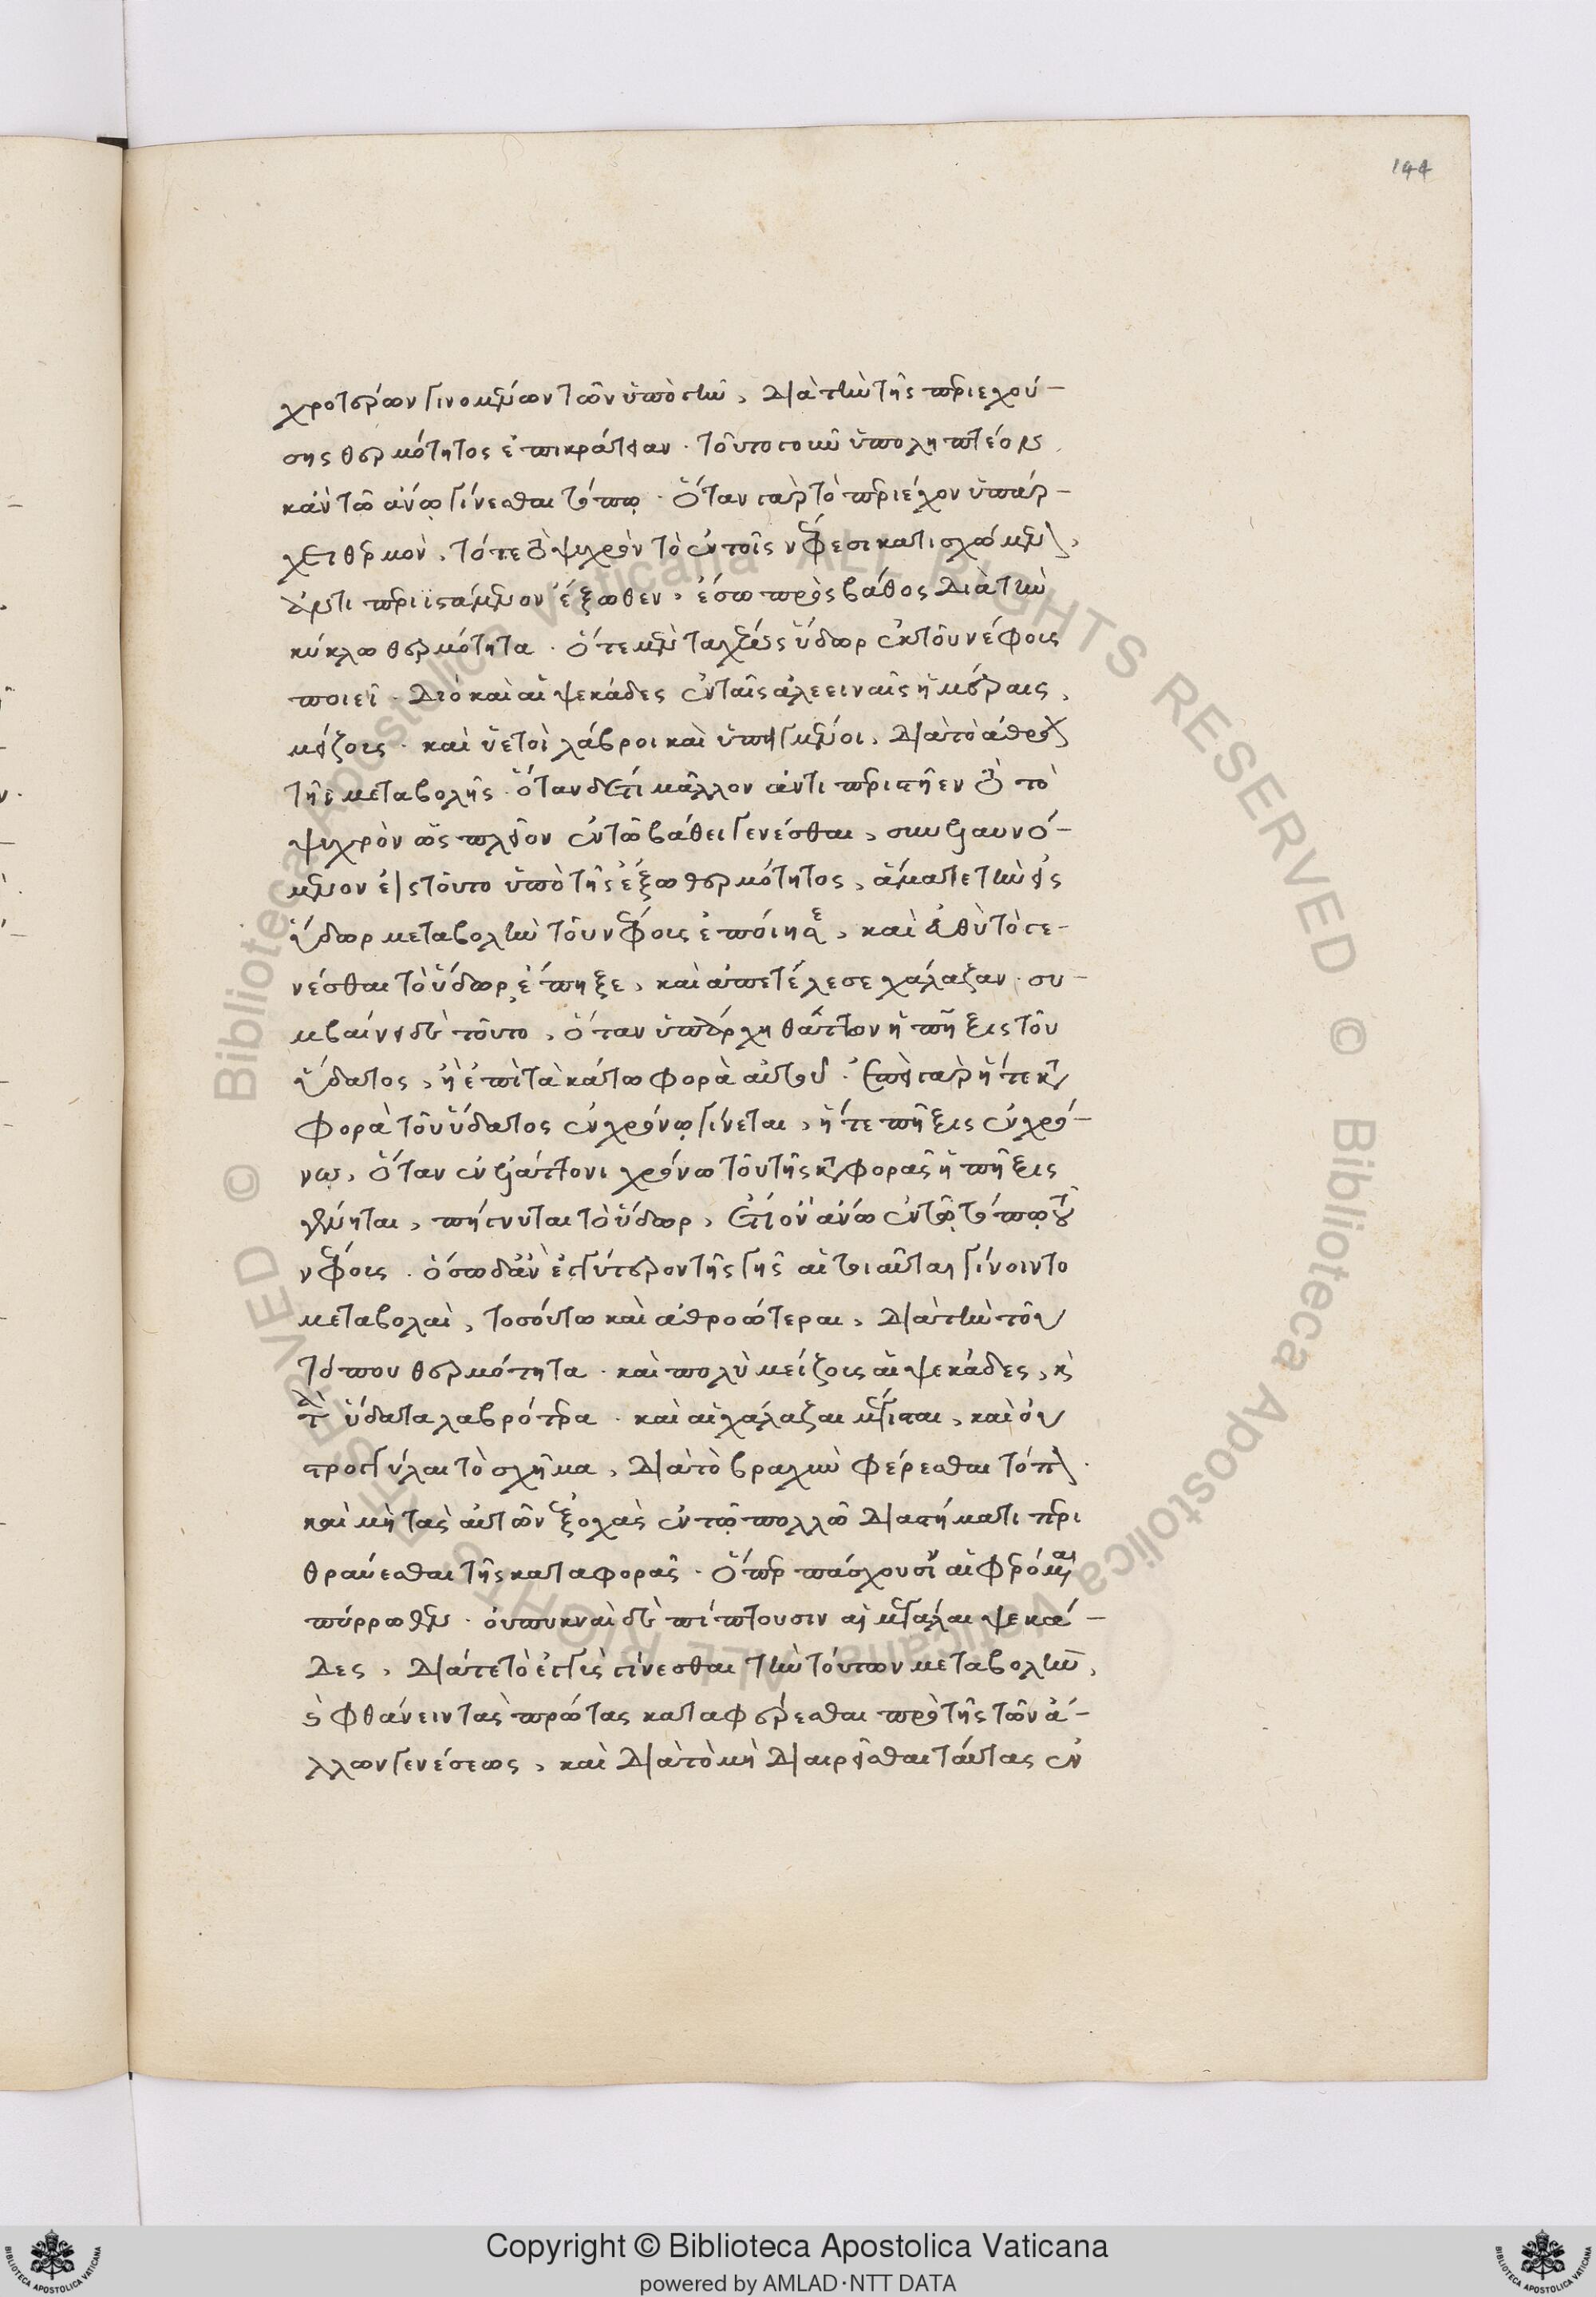 144
χροτέρων γινομένων τῶν ὑπὸ γῆν, διὰ τὴν τῆς περιεχού-
σης θερμότητος ἐπικράτειαν. τοῦτο γοῦν ὑποληπτέον
κἀν τῶ ἀνω γίνεσθαι τόπω. ὅταν γὰρ τὸ περιέχον ὑπάρ-
χει θερμὸν, τότε τὸ ψυχρὸν τὸ ἐν τοῖς νέφεσι κατισχόμενον,
ἀντιπεριιστάμενον ἔξωθεν, ἔσω πρὸς βάθος διὰ τὴν
κύκλω θερμότητα. ὁτὲ μὲν ταχέως ὕδωρ ἐκ τοῦ νέφους
ποιεῖ. διὸ καὶ αἱ ψεκάδες ἐν ταῖς ἀλεειναῖς ἡμέραις,
μείζους. καὶ ὑετοὶ λάβροι καὶ διὰ τὸ ἀθρόον
τῆς μεταβολῆς. ὅταν δ' ἔτι μᾶλλον ἀντιπεριστῆεν τὸ
ψυχρὸν ὡς πλεῖον ἐν τῶ βάθει γενέσθαι, συνελαυνό-
μενον εἰς τοῦτο ὑπὸ τῆς ἔξω θερμότητος, ἅμα τε τὴν εἰς
ὕδωρ μεταβολὴν τοῦ νέφους ἐποίησε, καὶ εὐθὺ τὸ γε-
νέσθαι τὸ ὕδωρ ἔπηξε, καὶ ἀπετέλεσε χάλαζαν. συ-
μβαίνει δὲ τοῦτο, ὅταν ὑπάρχη θᾶττον ἡ πῆξις τοῦ
ὕδατος, ἢ ἐπὶ τὰ κάτω φορὰ αὐτοῦ. ἐπεὶ γὰρ ἥ τε κατα
φορὰ τοῦ ὕδατος ἐν χρόνω γίνεται, ἥ τε πῆξις ἐν χρό-
νω, ὅταν ἐν ἐλάττονι χρόνω τοῦ τῆς καταφορᾶς ἡ πῆξις
γένηται, πήγνυται τὸ ὕδωρ, ἔτι ὂν ἀνω ἐν τῶ τόπω τοῦ
νέφους. ὅσω δ' ἂν ἐγγύτερον τῆς γῆς αἱ τοιαῦται γίνοιντο
μεταβολαὶ, τοσούτω καὶ ἀθροώτεραι, διὰ τὴν τοῦ
τόπου θερμότητα. καὶ πολὺ μείζους αἱ ψεκάδες, καὶ
τὰ ὕδατα λαβρότερα. καὶ αἱ χάλαζαι μέγισται, καὶ οὐ
στρογγύλαι τὸ σχῆμα, διὰ τὸ βραχὺν φέρεσθαι τόπον.
καὶ μὴ τὰς αὐτῶν ἐξοχὰς ἐν τῶ πολλῶ διαστήματι περι
θραύεσθαι τῆς καταφορᾶς. ὅπερ πάσχουσιν αἱ φερόμεναι
πόρρωθεν. οὐ πυκναὶ δὲ πίπτουσιν αἱ μεγάλαι ψεκά-
δες, διά τε τὸ ἐγγὺς γίνεσθαι τὴν τούτων μεταβολὴν,
καὶ φθάνειν τὰς πρώτας καταφέρεσθαι πρὸ τῆς τῶν ἄ-
λλων γενέσεως, καὶ διὰ τὸ μὴ διαιρεῖσθαι ταύτας ἐν
Copyright © Biblioteca Apostolica Vaticana
powered by AMLAD·NTT DATA
© Biblioteca Apostolica Vaticana ALL RIGHTS RESERVED © Biblioteca Apostolica Vaticana ALL RIGHTS RESERVED
BIBLIOTECA APOSTOLICA VATICANA
BIBLIOTECA APOSTOLICA VATICANA